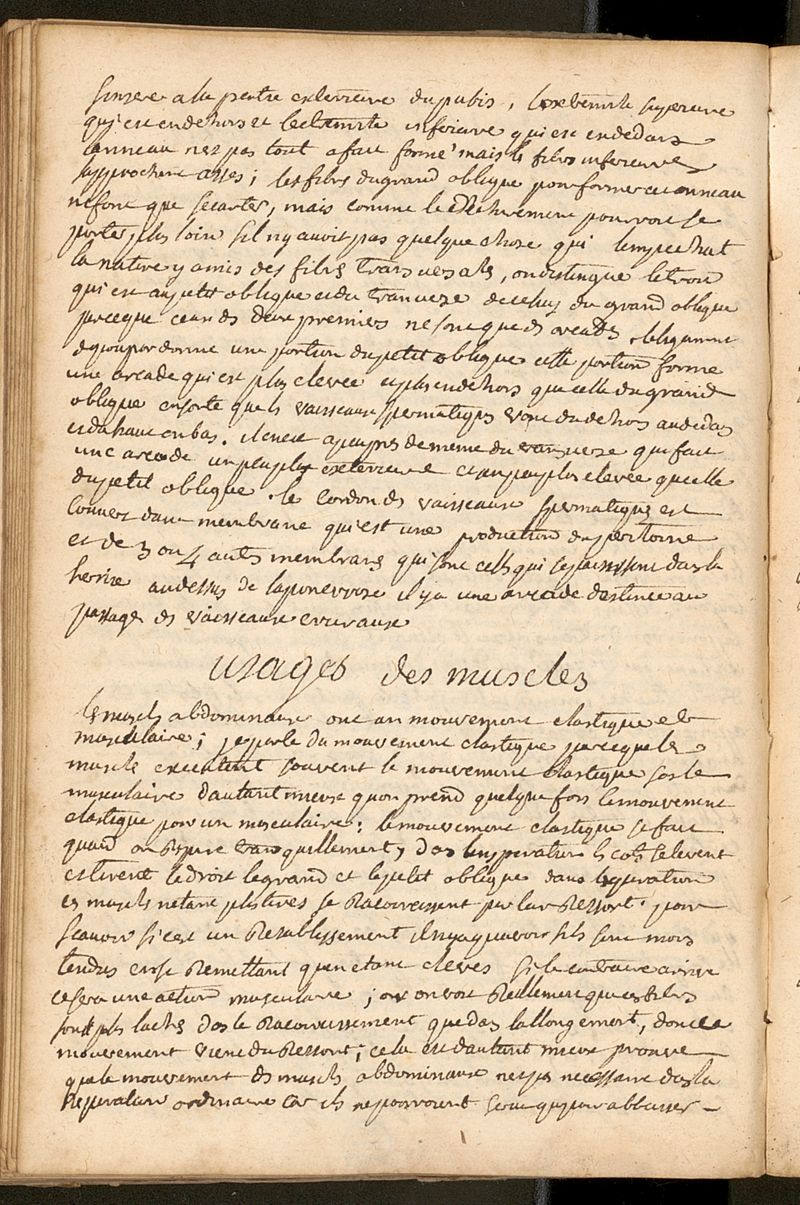 sinsere a la partie exterieure du pubis, lextremite superieure
qui est en dehors et lextremite inferieure qui est en dedans
lanneau nest pas tout a fait formé mais les fibres inferieures
sapprochent asses; les fibres du grand oblique pour former cet anneau
ne font que secarter, mais comme le dechirement pourroit se
porter plus loin sil ny avoit pas quelque chose qui lempechat
la nature y a mis des fibres transversales, on distingue le trou
qui est au petit oblique et du tranverze de celuy du grand oblique
parceque ceux des deux premiers ne sont que des arcades obliquement
une portion du petit oblique cette portion forme
une arcade qui est plus elevee et plus en dehors que celle du grand
oblique ensorte que les vaisseaux spermatiques vont du dehors au dedans
et du haut en bas. il en est a peu pres de meme du tranverze qui fait
une arcade un peu plus exterieure et un peu plus elevee que celle
du petit oblique. le cordon des vaisseaux spermatiques est
couvert dune membrane qui est une production du peritoine
et de 3 ou 4 autres membranes qui sont celles qui dans la
hernie au dessus de laponevroze il y a une arcade destinée au
passage des vaisseaux cruraux
usages des muscles
les muscles abdominaux ont un mouvement elastique et
musculaire; je parle du mouvement elastique parceque les
muscles executent souvent le mouvement elastique sans le
musculaire dautant mieux quon prend quelque fois le mouvement
elastique pour un musculaire: le mouvement elastique se fait
quand on respire tranquillement, dans linspiration les cotes selevent
et tirent le droit le grand et le petit oblique dans lexpiration
ces muscles netant plus tirés se racourcissent par leur ressort. pour
scavoir si cest un retablissement il ny a qua voir sils sont mois
tendus en se remettant quen etant eleves si le contraire arrive
ce sera une action musculaire; or on voit reellement que ces fibres
sont plus laches dans le racourcissement que dans lallongement, donc le
mouvement vient du ressort; cela est dautant mieux prouvé
que le mouvement des muscles abdominaux nest pas necessaire dans la
respiration ordinaire car ils ne pourroient servir que pour abbaisser